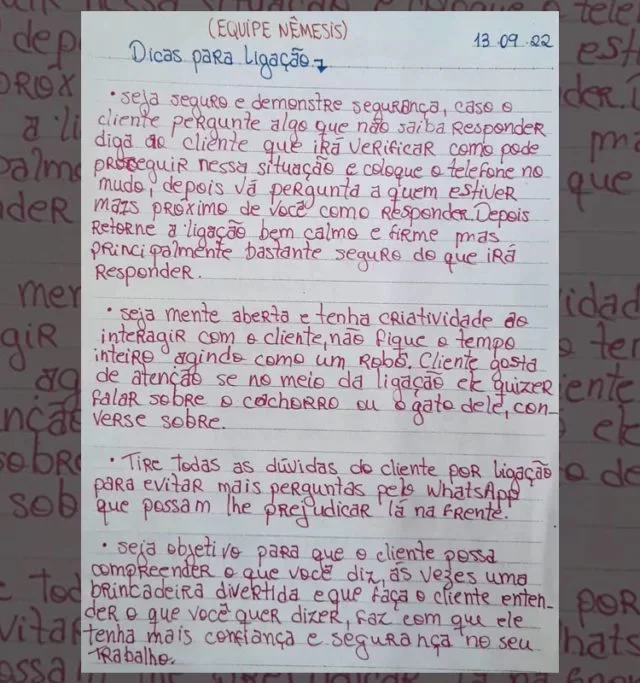 (EQUIPE NÊMESIS)
13.09.22
Dicas para Ligação
• seja seguro e demonstre segurança, caso o
cliente pergunte algo que não saiba responder
diga ao cliente que irá verificar como pode
prosseguir nessa situação e coloque o telefone no
mudo, depois vá pergunta a quem estiver
mais próximo de você como responder. Depois
retorne a ligação bem calmo e firme mas
principalmente bastante seguro do que irá
responder.
• seja mente aberta e tenha criatividade ao
interagir com o cliente, não fique o tempo
inteiro agindo como um robô. Cliente gosta
de atenção se no meio da ligação ele quizer
falar sobre o cachorro ou o gato dele, con-
verse sobre.
• Tire todas as dúvidas do cliente por ligação
para evitar mais perguntas pelo WhatsApp
que possam lhe prejudicar lá na frente.
• seja objetivo para que o cliente possa
compreender o que você diz, ás vezes uma
brincadeira divertida e que faça o cliente enten-
der o que você quer dizer, faz com que ele
tenha mais confiança e segurança no seu
trabalho.